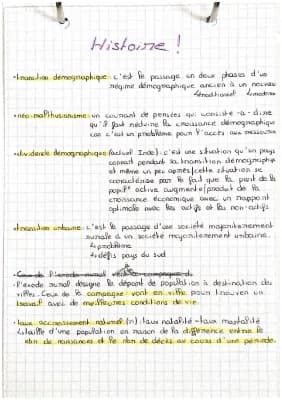 Histoire !
• transition démographique: c'est le passage en deux phases d'un
régime démographique ancien à un nouveau
↳traditionnel ↳moderne
• néo-malthusianisme: un courant de pensées qui consiste à dire
qu'il faut réduire la croissance démographique
car c'est un problème pour l'accès aux ressources
• dividende démographique: (actuel Inde): c'est une situation qu'un pays
connait pendant la transition démographique
et même un peu après/cette situation se
caractérise par le fait que la part de la
popu° active augmente/produit de la
croissance économique avec un rapport
optimale avec les actifs et les non-actifs
• transition urbaine: c'est le passage d'une société majoritairement
rurale à un société majoritairement urbaine.
↳problème
↳défis pays du sud
l'exode rural désigne le départ de population à destination des
villes. Ceux de la campagne vont en ville pour trouver un
travail avec de meilleures conditions de vie.
• taux accroissement naturel (n): taux natalité - taux mortalité
↳taille d'une population en raison de la différence entre le
nbn de naissances et le nbn de décès au cours d'une période.